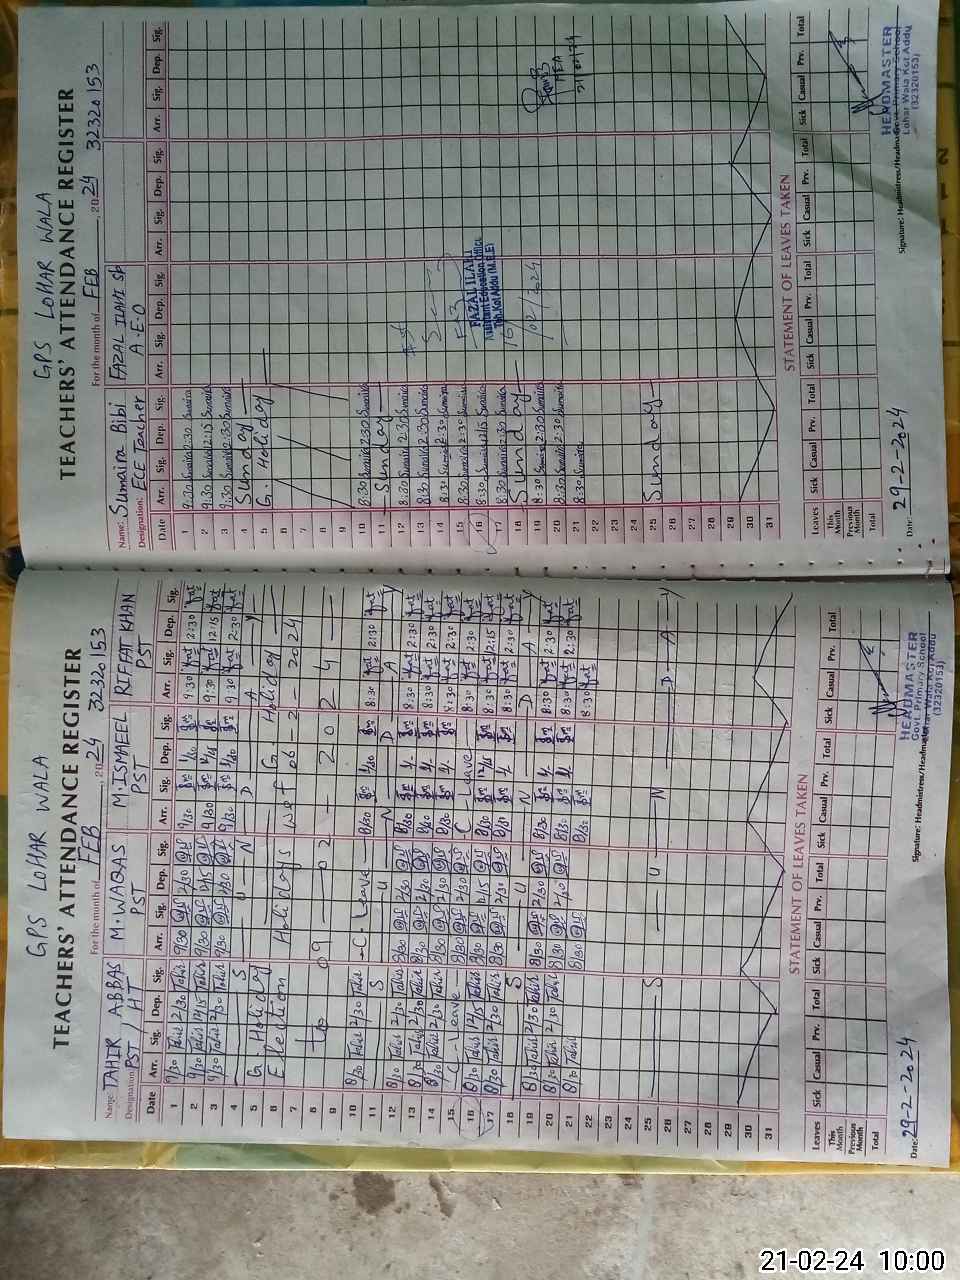 GPS LOHAR WALA
TEACHERS' ATTENDANCE REGISTER 32320153
For the month of FEB , 2024
Name: TAHIR ABBAS M.WAQAS M.ISMAEEL RIFFAT KHAN
Designation: PST / HT PST PST PST
Date Arr. Sig. Dep. Sig. Arr. Sig. Dep. Sig. Arr. Sig. Dep. Sig. Arr. Sig. Dep. Sig.
1 9/30 Tahir 2/30 Tahir 9/30 2/30 9/30 9:30 2:30
2 9/30 Tahir 12/15 Tahir 9/30 12/15 9/30 12/15 9:30 12:15
3 9/30 Tahir 2/30 Tahir 9/30 2/30 9/30 9:30 2:30
4 S U N D A Y
5 G. Holiday G. Holiday
6 Election Holidays w e f 06 - 2 - 2024
7
8 to 09 - 02 - 2024
9
10 8/30 Tahir 2/30 Tahir C. Leave 8/30 8:30 2:30
11 S U N D A Y
12 8/30 Tahir 2/30 Tahir 8/30 2/30 8/30 8:30 2:30
13 8/30 Tahir 2/30 Tahir 8/30 2/30 8/30 8:30 2:30
14 8/30 Tahir 2/30 Tahir 8/30 2/30 8/30 8:30 2:30
15 C Leave 8/30 2/30 C Leave 8:30 2:30
16 8/30 Tahir 12/15 Tahir 8/30 12/15 8/30 12/15 8:30 12:15
17 8/30 Tahir 2/30 Tahir 8/30 2/30 8/30 8:30 2:30
18 S U N D A Y
19 8/30 Tahir 2/30 Tahir 8/30 2/30 8/30 8:30 2:30
20 8/30 Tahir 2/30 Tahir 8/30 2/30 8/30 8:30 2:30
21 8/30 Tahir 8/30 8/30 8:30
22
23
24
25 S U N D A Y
26
27
28
29
30
31
STATEMENT OF LEAVES TAKEN
Leaves Sick Casual Prv. Total Sick Casual Prv. Total Sick Casual Prv. Total Sick Casual Prv. Total
This Month
Previous Month
Total
Date: 29-2-2024 Signature: Headmistress/Headmaster
HEADMASTER
Govt. Primary School
Lohar Wala Kot Addu
(32320153)
GPS LOHAR WALA
TEACHERS' ATTENDANCE REGISTER 32320153
For the month of FEB , 2024
Name: Sumaira Bibi FAZAL ILAHI Sb
Designation: ECE Teacher A.E.O
Date Arr. Sig. Dep. Sig. Arr. Sig. Dep. Sig. Arr. Sig. Dep. Sig. Arr. Sig. Dep. Sig.
1 9:30 Sumaira 2:30 Sumaira
2 9:30 Sumaira 12:15 Sumaira
3 9:30 Sumaira 2:30 Sumaira
4 Sunday
5 G. Holiday
6
7
8
9
10 8:30 Sumaira 2:30 Sumaira
11 Sunday
12 8:30 Sumaira 2:30 Sumaira
13 8:30 Sumaira 2:30 Sumaira
14 8:30 Sumaira 2:30 Sumaira
15 8:30 Sumaira 2:30 Sumaira
16 8:30 Sumaira 12:15 Sumaira
17 8:30 Sumaira 2:30 Sumaira
18 Sunday
19 8:30 Sumaira 2:30 Sumaira
20 8:30 Sumaira 2:30 Sumaira
21 8:30 Sumaira
22
23
24
25 Sunday
26
27
28
29
30
31
FAZAL ILAHI
Assistant Education Officer
Teh. Kot Addu (M.E.E)
16/02/2024
MEA
21/02/24
STATEMENT OF LEAVES TAKEN
Leaves Sick Casual Prv. Total Sick Casual Prv. Total Sick Casual Prv. Total Sick Casual Prv. Total
This Month
Previous Month
Total
Date: 29-2-2024 Signature: Headmistress/Headmaster
HEADMASTER
Govt. Primary School
Lohar Wala Kot Addu
(32320153)
21-02-24 10:00